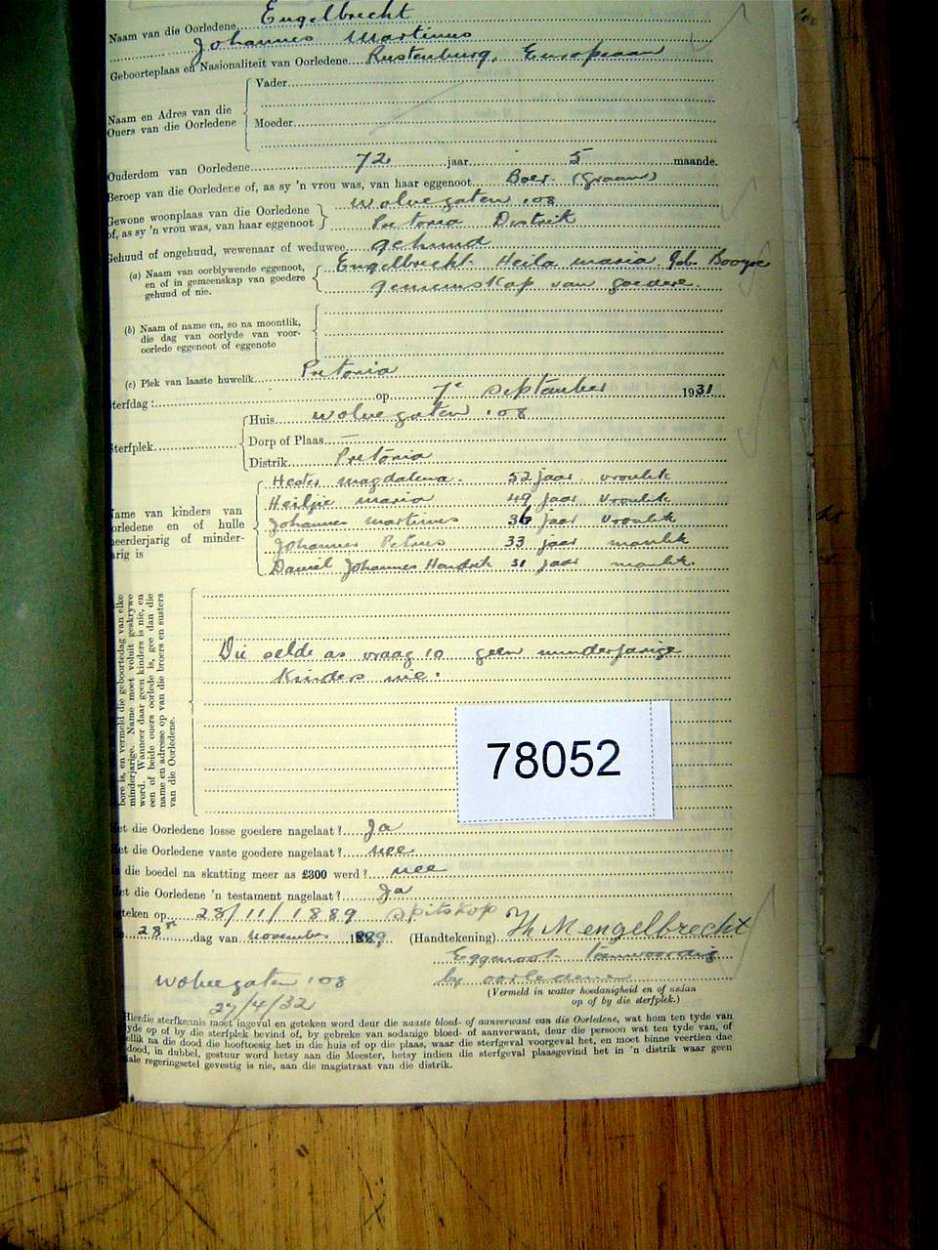 Naam van die Oorledene Engelbrecht
Johannes Martinus
Geboorteplaas en Nasionaliteit van Oorledene Rustenburg, Europiaan
Naam en Adres van die Ouers van die Oorledene
Vader
Moeder
Ouderdom van Oorledene 72 jaar 5 maande.
Beroep van die Oorledene of, as sy 'n vrou was, van haar eggenoot Boer (Graan)
Gewone woonplaas van die Oorledene of, as sy 'n vrou was, van haar eggenoot
Wolvegaten 108
Pretoria Distrik
Gehuud of ongehuud, wewenaar of weduwee gehuud
(a) Naam van oorblywende eggenoot, en of in gemeenskap van goedere gehuud of nie.
Engelbrecht Heila Maria Geb.
gemeenskap van goedere.
(b) Naam of name en, so na moontlik, die dag van oorlyde van voor-oorlede eggenoot of eggenote
(c) Plek van laaste huwelik Pretoria
terfdag: op 7e September 1931
terfplek
Huis Wolvegaten 108
Dorp of Plaas —
Distrik Pretoria
Name van kinders van orledene en of hulle eerderjarig of minder-arig is
Hester Magdalena 52 jaar vroulik
Heiljie Maria 49 jaar vroulik
Johannes Martinus 36 jaar vroulik
Johannes Petrus 33 jaar manlik
Daniel Johannes Hendrik 31 jaar manlik
bore is, en vermeld die geboortedag van elke
minderjarige. Name moet voluit geskrywe
word. Wanneer daar geen kinders is nie, en
een of beide ouers oorlede is, gee dan die
name en adresse op van die broers en susters
van die Oorledene.
Die selde as vraag 10 geen minderjarige
kinders nie.
78052
et die Oorledene losse goedere nagelaat? Ja
et die Oorledene vaste goedere nagelaat? nee
die boedel na skatting meer as £300 werd? nee
et die Oorledene 'n testament nagelaat? Ja
eteken op 28/11/1889 Spitskop
28ste dag van November 1889 (Handtekening) H M engelbrecht
Eggenoot teenwoordig
by oorledene
(Vermeld in watter hoedanigheid en of aslan
op of by die sterfplek.)
Wolvegaten 108
27/4/32
Hierdie sterfkennis moet ingevul en geteken word deur die naaste bloed- of aanverwant van die Oorledene, wat hom ten tyde van
yde op of by die sterfplek bevind of, by gebreke van sodanige bloed- of aanverwant, deur die persoon wat ten tyde van, of
ellik na die dood die hooftoesig het in die huis of op die plaas, waar die sterfgeval voorgeval het, en moet binne veertien dae
dood, in dubbel, gestuur word hetsy aan die Meester, hetsy indien die sterfgeval plaasgevind het in 'n distrik waar geen
ale regeringsetel gevestig is nie, aan die magistraat van die distrik.